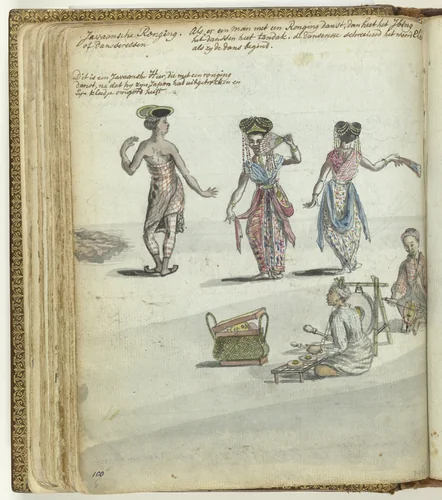 Javaansche Ronging.
of danseressen
Als er een man met een Ronging danst, dan heet het
het danssen heet tandak. de danseresse schreeuwd het woord
als zy de dans begind.
Dit is een Javaansch Heer, die met een ronging
danst, na dat hy zyn Japon had uitgetrokken en
zyn kleedje
100